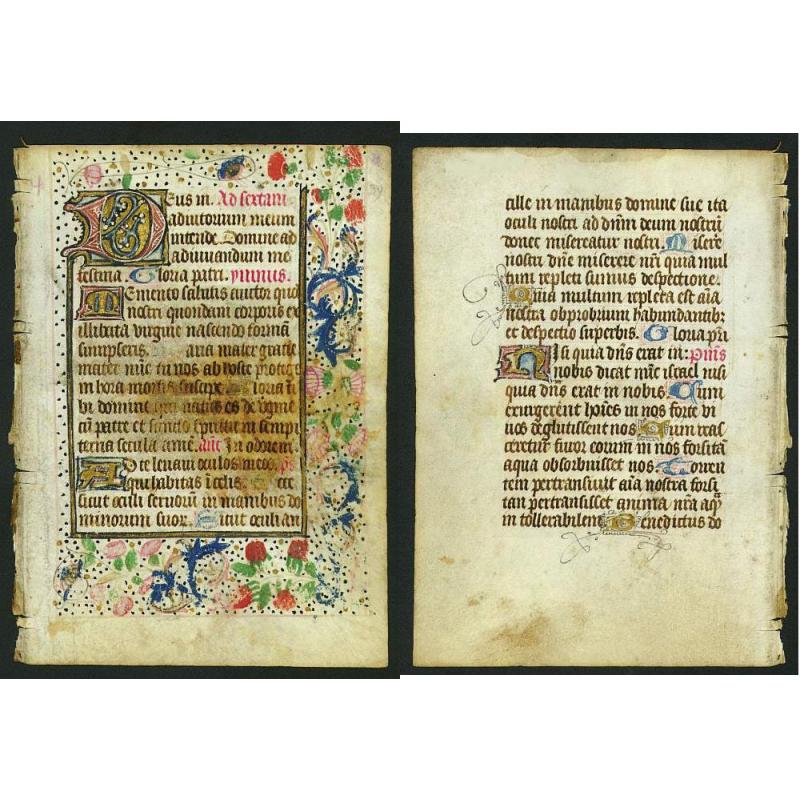 Deus in. Ad sextam
adiutorium meum
intende. Domine ad
adiuvandum me
festina. Gloria patri. ymnus.
Memento salutis auctor quod
nostri quondam corporis ex
illibata virgine nascendo formam
sumpseris. Maria mater gratie
mater mīe tu nos ab hoste protege
in hora mortis suscipe. Gloria ti
bi domine qui natus es de v̄gine
cū patre et sancto sp̄ritu in sempi
terna secula amē. añt In odorem.
Ad te levavi oculos meos. ps
qui habitas ī celis. Ecce
sicut oculi servorū in manibus do
minorum suoꝝ. Sicut oculi an
cille in manibus domine sue ita
oculi nostri ad dn̄m deum nostrū
donec misereatur nostri. Misere
nostri dn̄e miserere nr̄i quia mul
tum repleti sumus despectione.
Quia multum repleta est aīa
nostra obprobrium habundantibꝫ
et despectio superbis. Gloria pr̄i
Nisi quia dn̄s erat in: ps̄ms
nobis dicat nūc israel nisi
quia dn̄s erat in nobis Cum
exurgerent hoīes in nos forte vi
vos deglutissent nos Cum iras
ceretur furor eorum in nos forsitā
aqua obsorbuisset nos Torren
tem pertransivit aīa nostra forsi
tan pertransisset anima nr̄a aq̄ꝫ
in tollerabilem Benedictus do